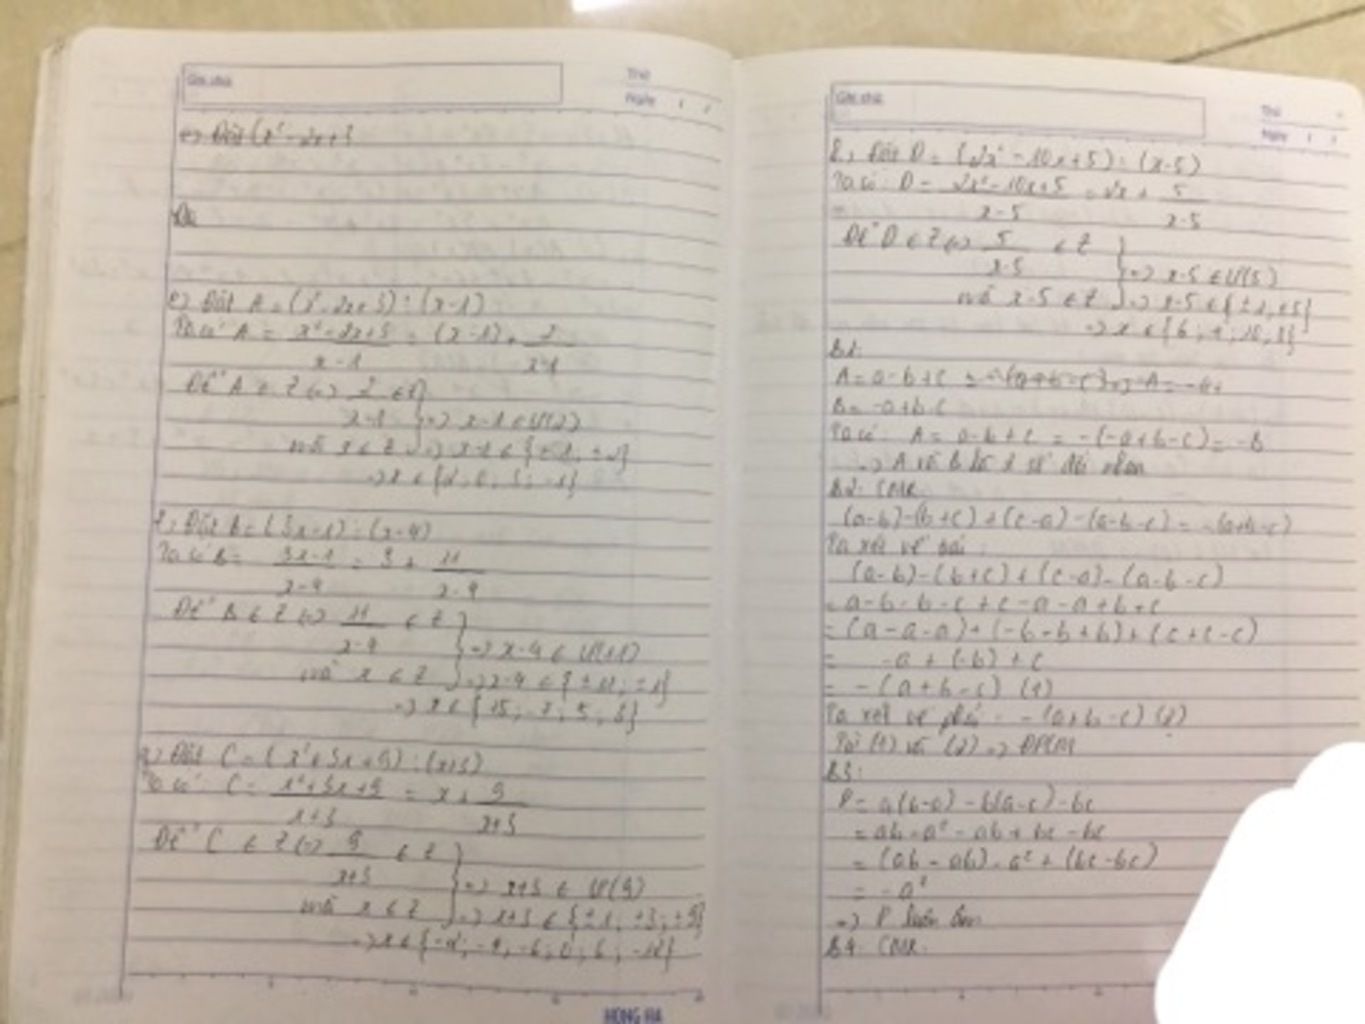 Ghi chú
Thứ
Ngày
e) Đặt (x² - 2x + 3
Để
e) Đặt A = (x² - 2x + 3) : (x - 1)
Ta có A = x² - 2x + 3 / x - 1 = (x - 1) + 2 / x - 1
Để A ∈ Z <=> 2 / x - 1 ∈ Z
=> x - 1 ∈ Ư(2)
mà x ∈ Z => x - 1 ∈ {± 1; ± 2}
=> x ∈ {2; 0; 3; -1}
f) Đặt B = (3x - 1) : (x - 4)
Ta có B = 3x - 1 / x - 4 = 3 + 11 / x - 4
Để B ∈ Z <=> 11 / x - 4 ∈ Z
=> x - 4 ∈ Ư(11)
mà x ∈ Z => x - 4 ∈ {± 11; ± 1}
=> x ∈ {15; -7; 5; 3}
g) Đặt C = (x² + 3x + 9) : (x + 3)
Ta có: C = x² + 3x + 9 / x + 3 = x + 9 / x + 3
Để C ∈ Z <=> 9 / x + 3 ∈ Z
=> x + 3 ∈ Ư(9)
mà x ∈ Z => x + 3 ∈ {± 1; ± 3; ± 9}
=> x ∈ {-2; -4; -6; 0; 6; -12}
HONG HA
Ghi chú
Thứ
Ngày
Đặt D = (2x² - 10x + 5) : (x - 5)
Ta có: D = 2x² - 10x + 5 / x - 5 = 2x + 5 / x - 5
Để D ∈ Z <=> 5 / x - 5 ∈ Z
=> x - 5 ∈ Ư(5)
mà x - 5 ∈ Z => x - 5 ∈ {± 1; ± 5}
=> x ∈ {6; 4; 10; }
B1:
A = a - b + c
B = -a + b - c
Ta có: A = a - b + c = -(-a + b - c) = -B
=> A và B là 2 số đối nhau
B2: CMR
(a - b) - (b + c) + (c - a) - (a - b - c) = -(a + b - c)
Ta xét vế trái:
(a - b) - (b + c) + (c - a) - (a - b - c)
= a - b - b - c + c - a - a + b + c
= (a - a - a) + (-b - b + b) + (c + c - c)
= -a + (-b) + c
= -(a + b - c) (1)
Ta xét vế phải = -(a + b - c) (2)
Từ (1) và (2) => ĐPCM
B3:
P = a(b - a) - b(a - c) - bc
= ab - a² - ab + bc - bc
= (ab - ab) - a² + (bc - bc)
= -a²
=> P luôn âm
B4: CMR